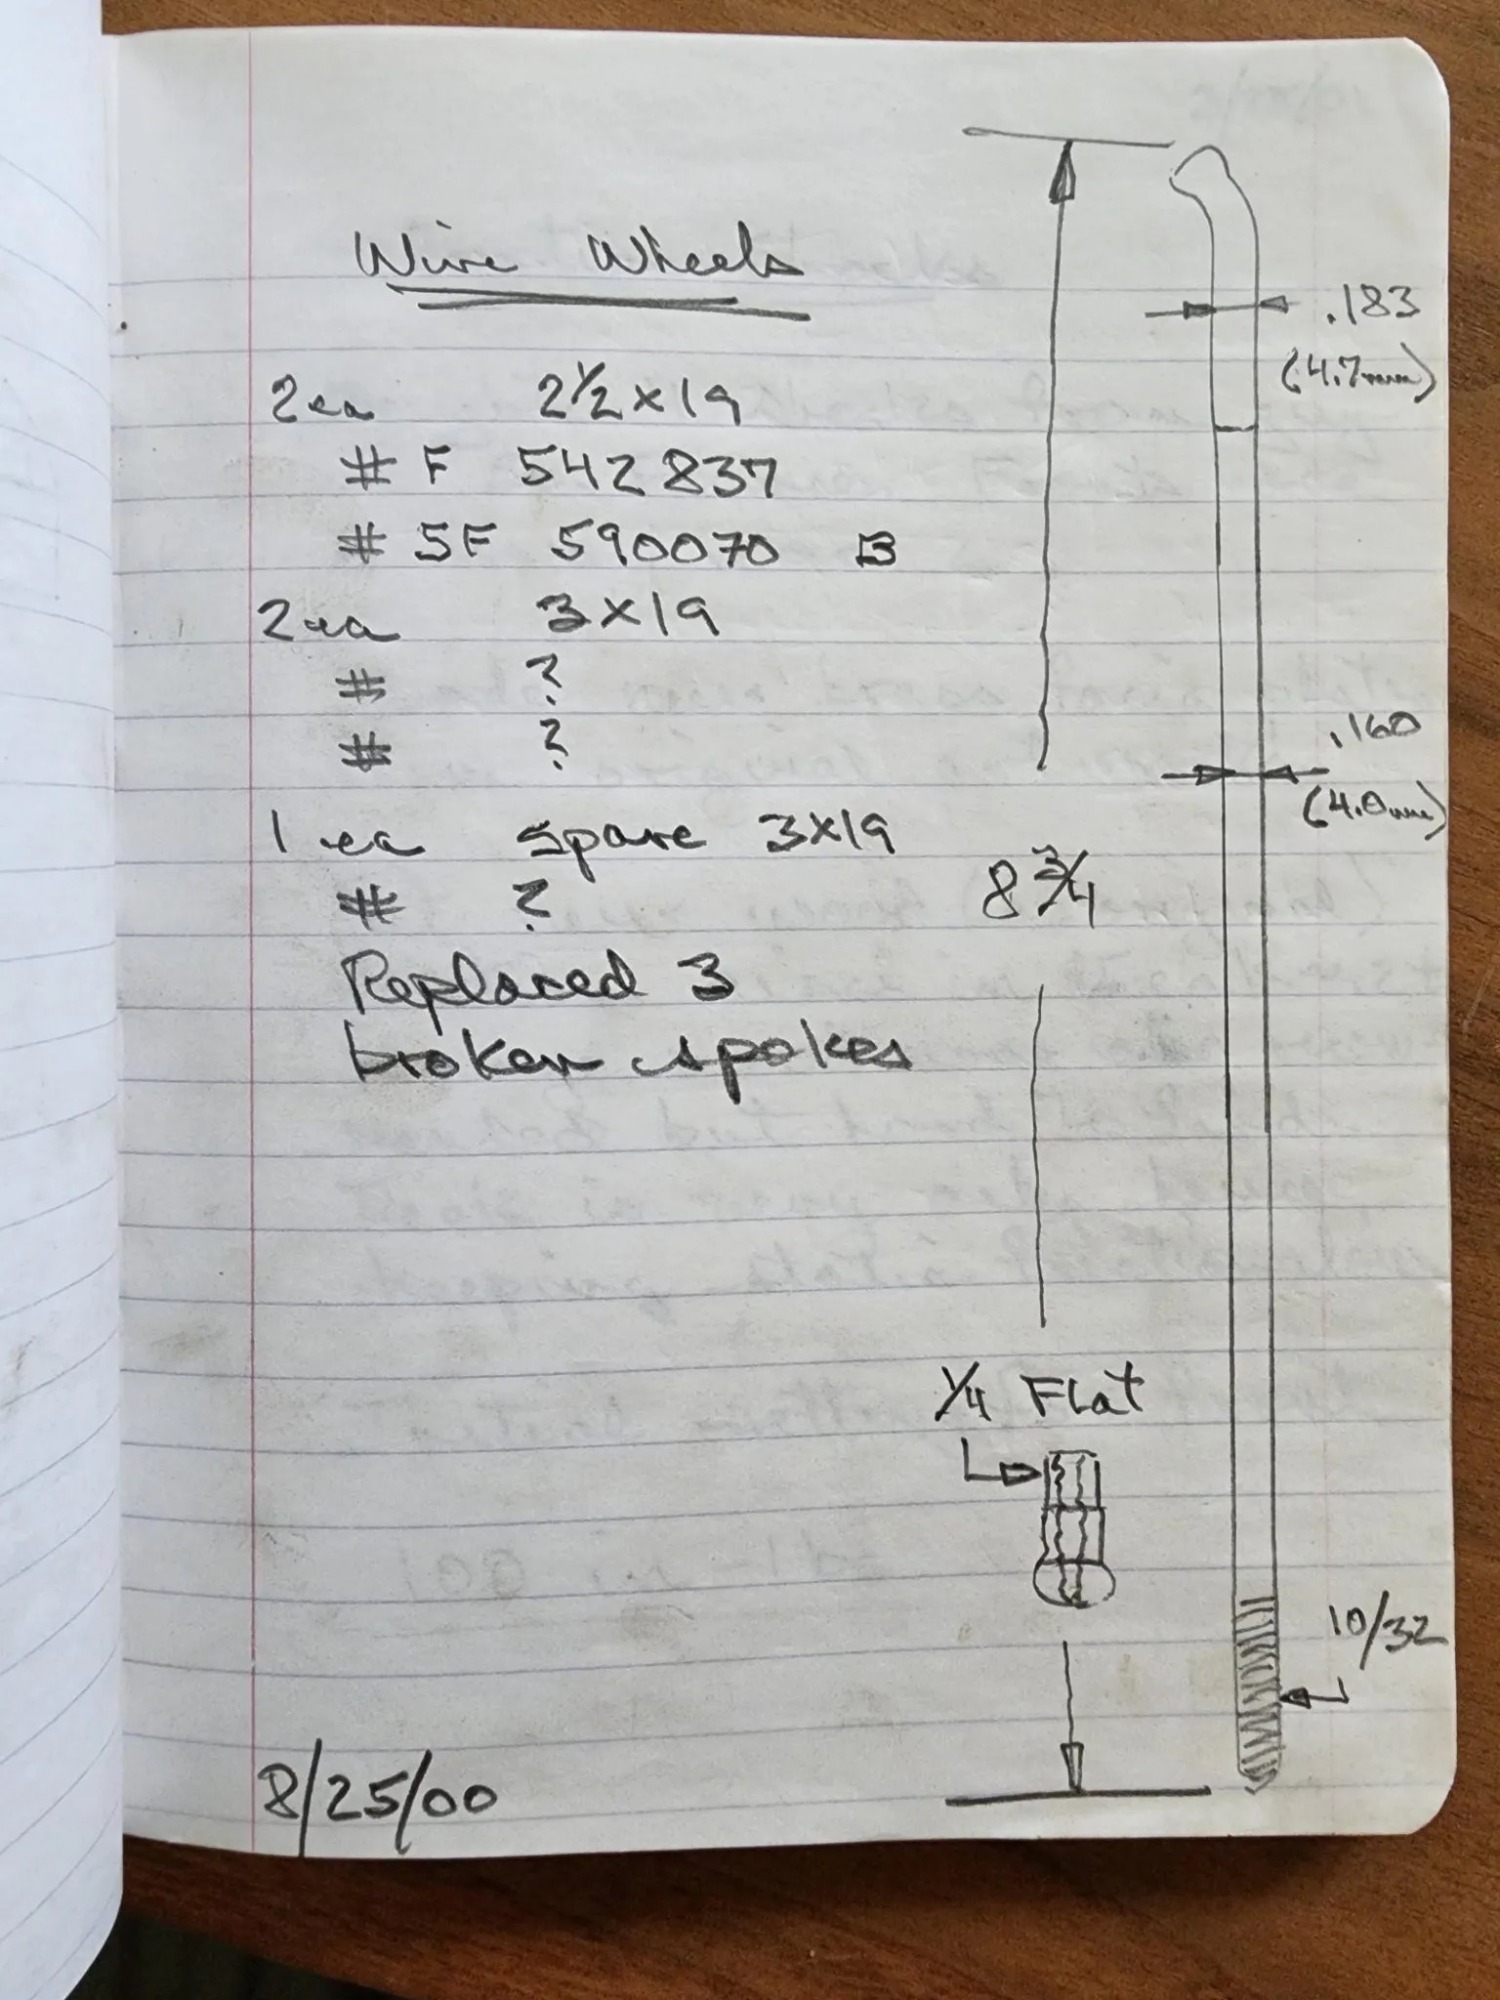 Wire Wheels
2ea 2½ x 19
# F 542837
# SF 590070 B
2ea 3x19
# ?
# ?
1 ea spare 3x19
# ?
Replaced 3
broken spokes
8/25/00
.183
(4.7mm)
.160
(4.0mm)
8 3/4
1/4 Flat
10/32